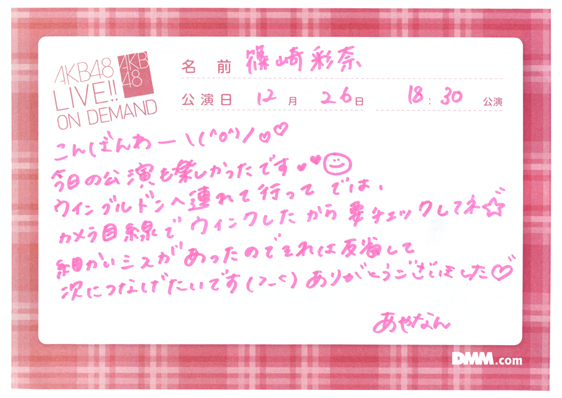 AKB48
LIVE!!
ON DEMAND
AKB
48
名前 篠崎彩奈
公演日 12月 26日 18:30 公演
こんばんわー\(^o^)/♥♡
今日の公演も楽しかったです♥♥
ウインブルドンへ連れて行ってでは、
カメラ目線でウィンクしたから要チェックしてネ☆
細かいミスがあったのでそれは反省して
次につなげたいです(>_<)ありがとうございました♡
あやなん
DMM.com